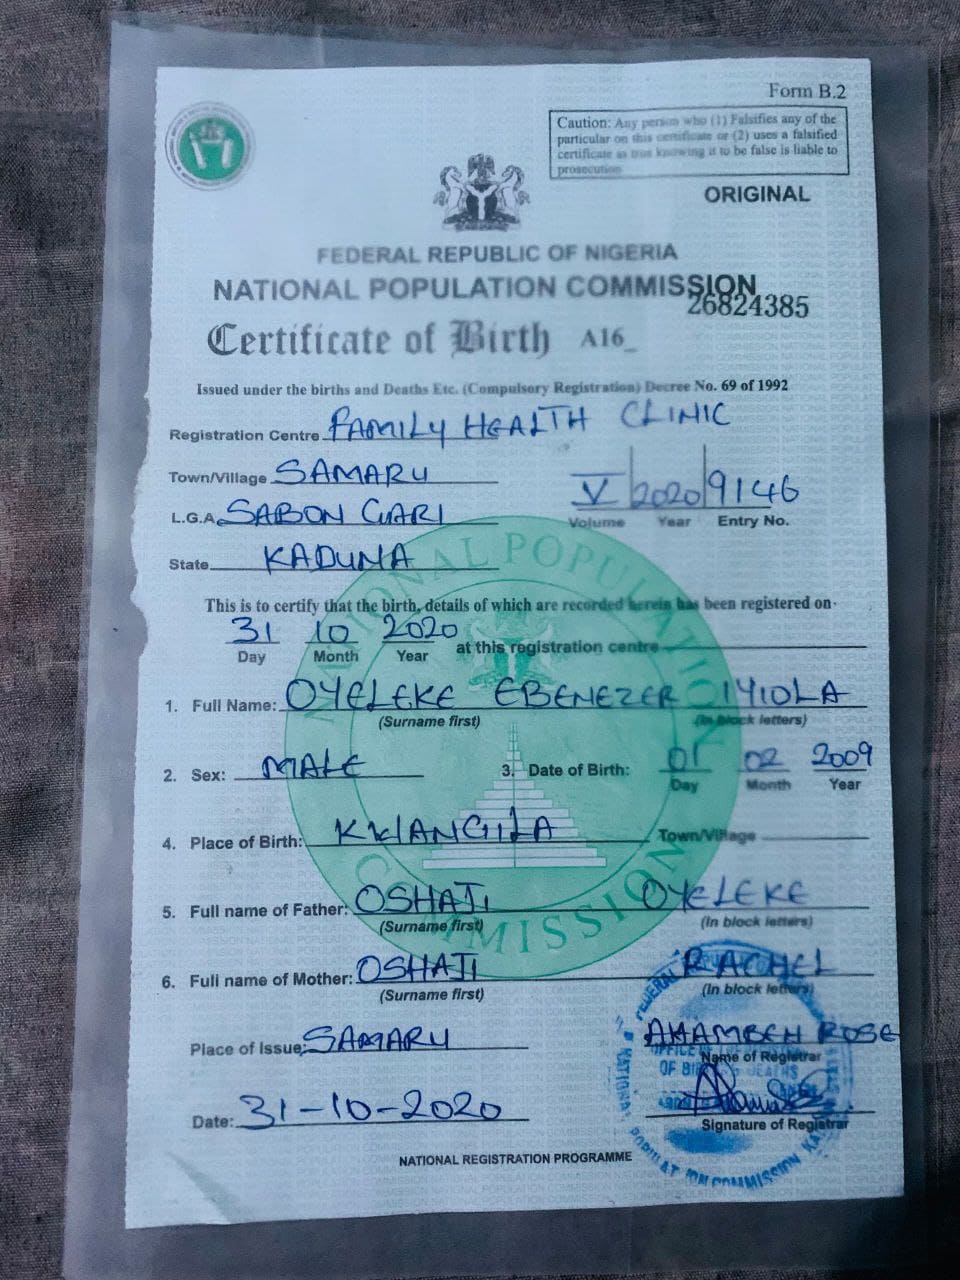 Form B.2
Caution: Any person who (1) Falsifies any of the
particular on this certificate or (2) uses a falsified
certificate as true knowing it to be false is liable to
prosecution
ORIGINAL
FEDERAL REPUBLIC OF NIGERIA
NATIONAL POPULATION COMMISSION
26824385
Certificate of Birth A16_
Issued under the births and Deaths Etc. (Compulsory Registration) Decree No. 69 of 1992
Registration Centre FAMILY HEALTH CLINIC
Town/Village SAMARU
V 2020 9146
L.G.A SABON GARI
Volume Year Entry No.
State KADUNA
This is to certify that the birth, details of which are recorded herein has been registered on
31 10 2020 at this registration centre
Day Month Year
1. Full Name: OYELEKE EBENEZER IYIOLA
(Surname first) (In block letters)
2. Sex: MALE 3. Date of Birth: 01 02 2009
Day Month Year
4. Place of Birth: KWANGILA Town/Village
5. Full name of Father: OSHAJI OYELEKE
(Surname first) (In block letters)
6. Full name of Mother: OSHAJI RACHEL
(Surname first) (In block letters)
Place of Issue: SAMARU
AHAMBEH ROSE
Name of Registrar
Date: 31-10-2020
Signature of Registrar
NATIONAL REGISTRATION PROGRAMME
NATIONAL POPULATION COMMISSION